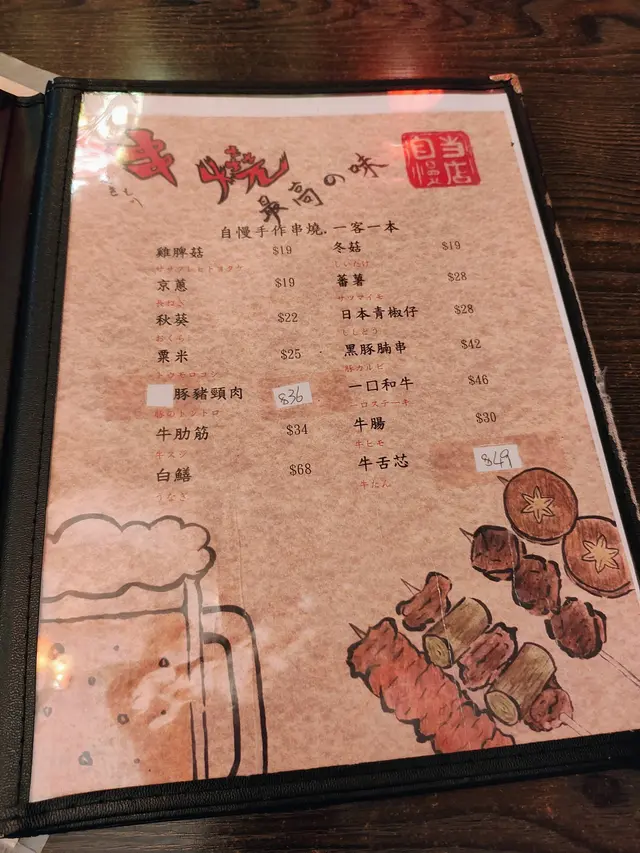 串燒
最高の味
当店
自慢
自慢手作串燒.一客一本
雞脾菇 $19
京蔥 $19
長ねぎ
秋葵 $22
おくら
粟米 $25
トウモロコシ
豚豬頸肉 $36
豚のトントロ
牛肋筋 $34
牛スジ
白鱔 $68
うなぎ
冬菇 $19
しいたけ
蕃薯 $28
サツマイモ
日本青椒仔 $28
ししとう
黑豚腩串 $42
豚カルビ
一口和牛 $46
一口ステーキ
牛腸 $30
ホヒモ
牛舌芯 $49
牛たん